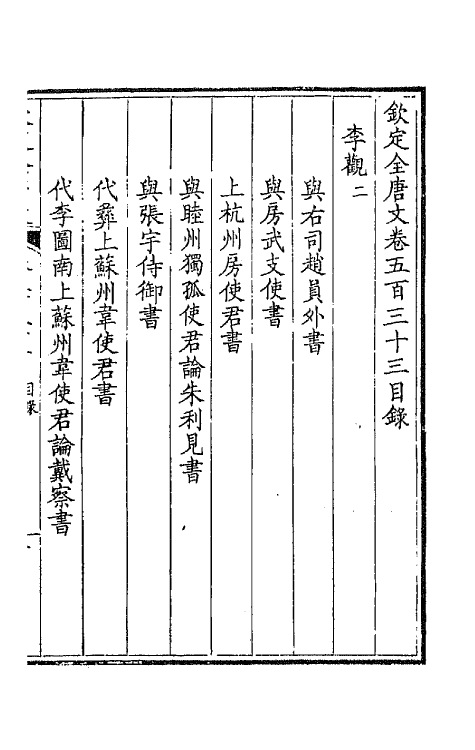 欽定全唐文卷五百三十三目錄
李觀二
與右司趙員外書
與房武支使書
上杭州房使君書
與睦州獨孤使君論朱利見書
與張宇侍御書
代彝上蘇州韋使君書
代李圖南上蘇州韋使君論戴察書
目錄
一